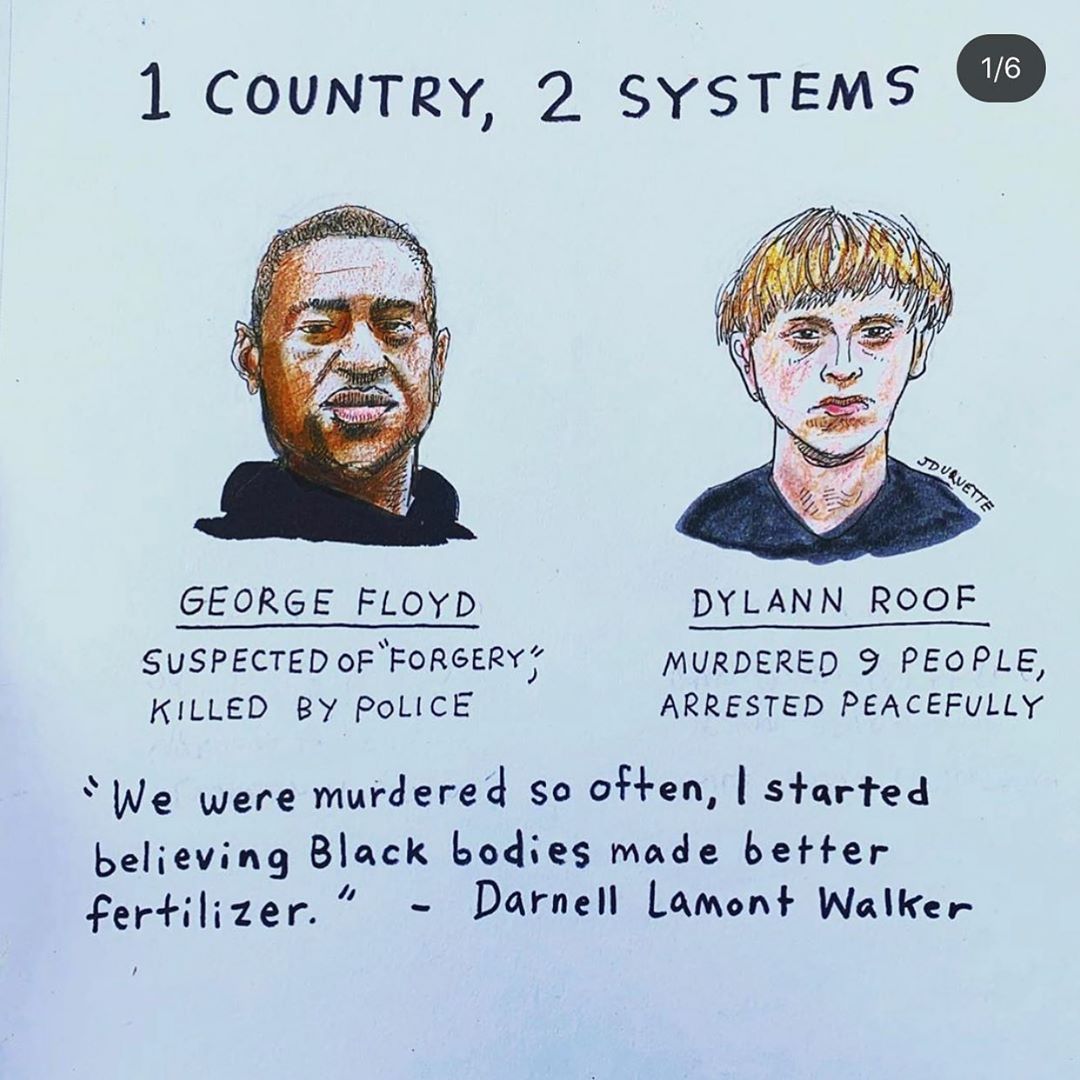 1/6
1 COUNTRY, 2 SYSTEMS
JDUQUETTE
GEORGE FLOYD
SUSPECTED OF "FORGERY",
KILLED BY POLICE
DYLANN ROOF
MURDERED 9 PEOPLE,
ARRESTED PEACEFULLY
"We were murdered so often, I started
believing Black bodies made better
fertilizer." - Darnell Lamont Walker